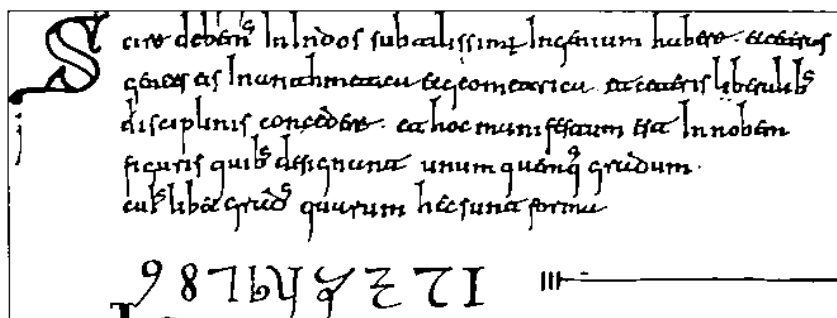 Scire debem⁹ In Indos subtilissimū Ingenium habere et ceteras
gentes eis In arithmetica et geometrica et ceteris liberalib⁹
disciplinis concedere et hoc manifestum est In nobem
figuris quib⁹ designant unum quemq⁹ gradum
cui⁹libet grad⁹ quarum hec sunt forma
9 8 7 6 5 4 3 2 1